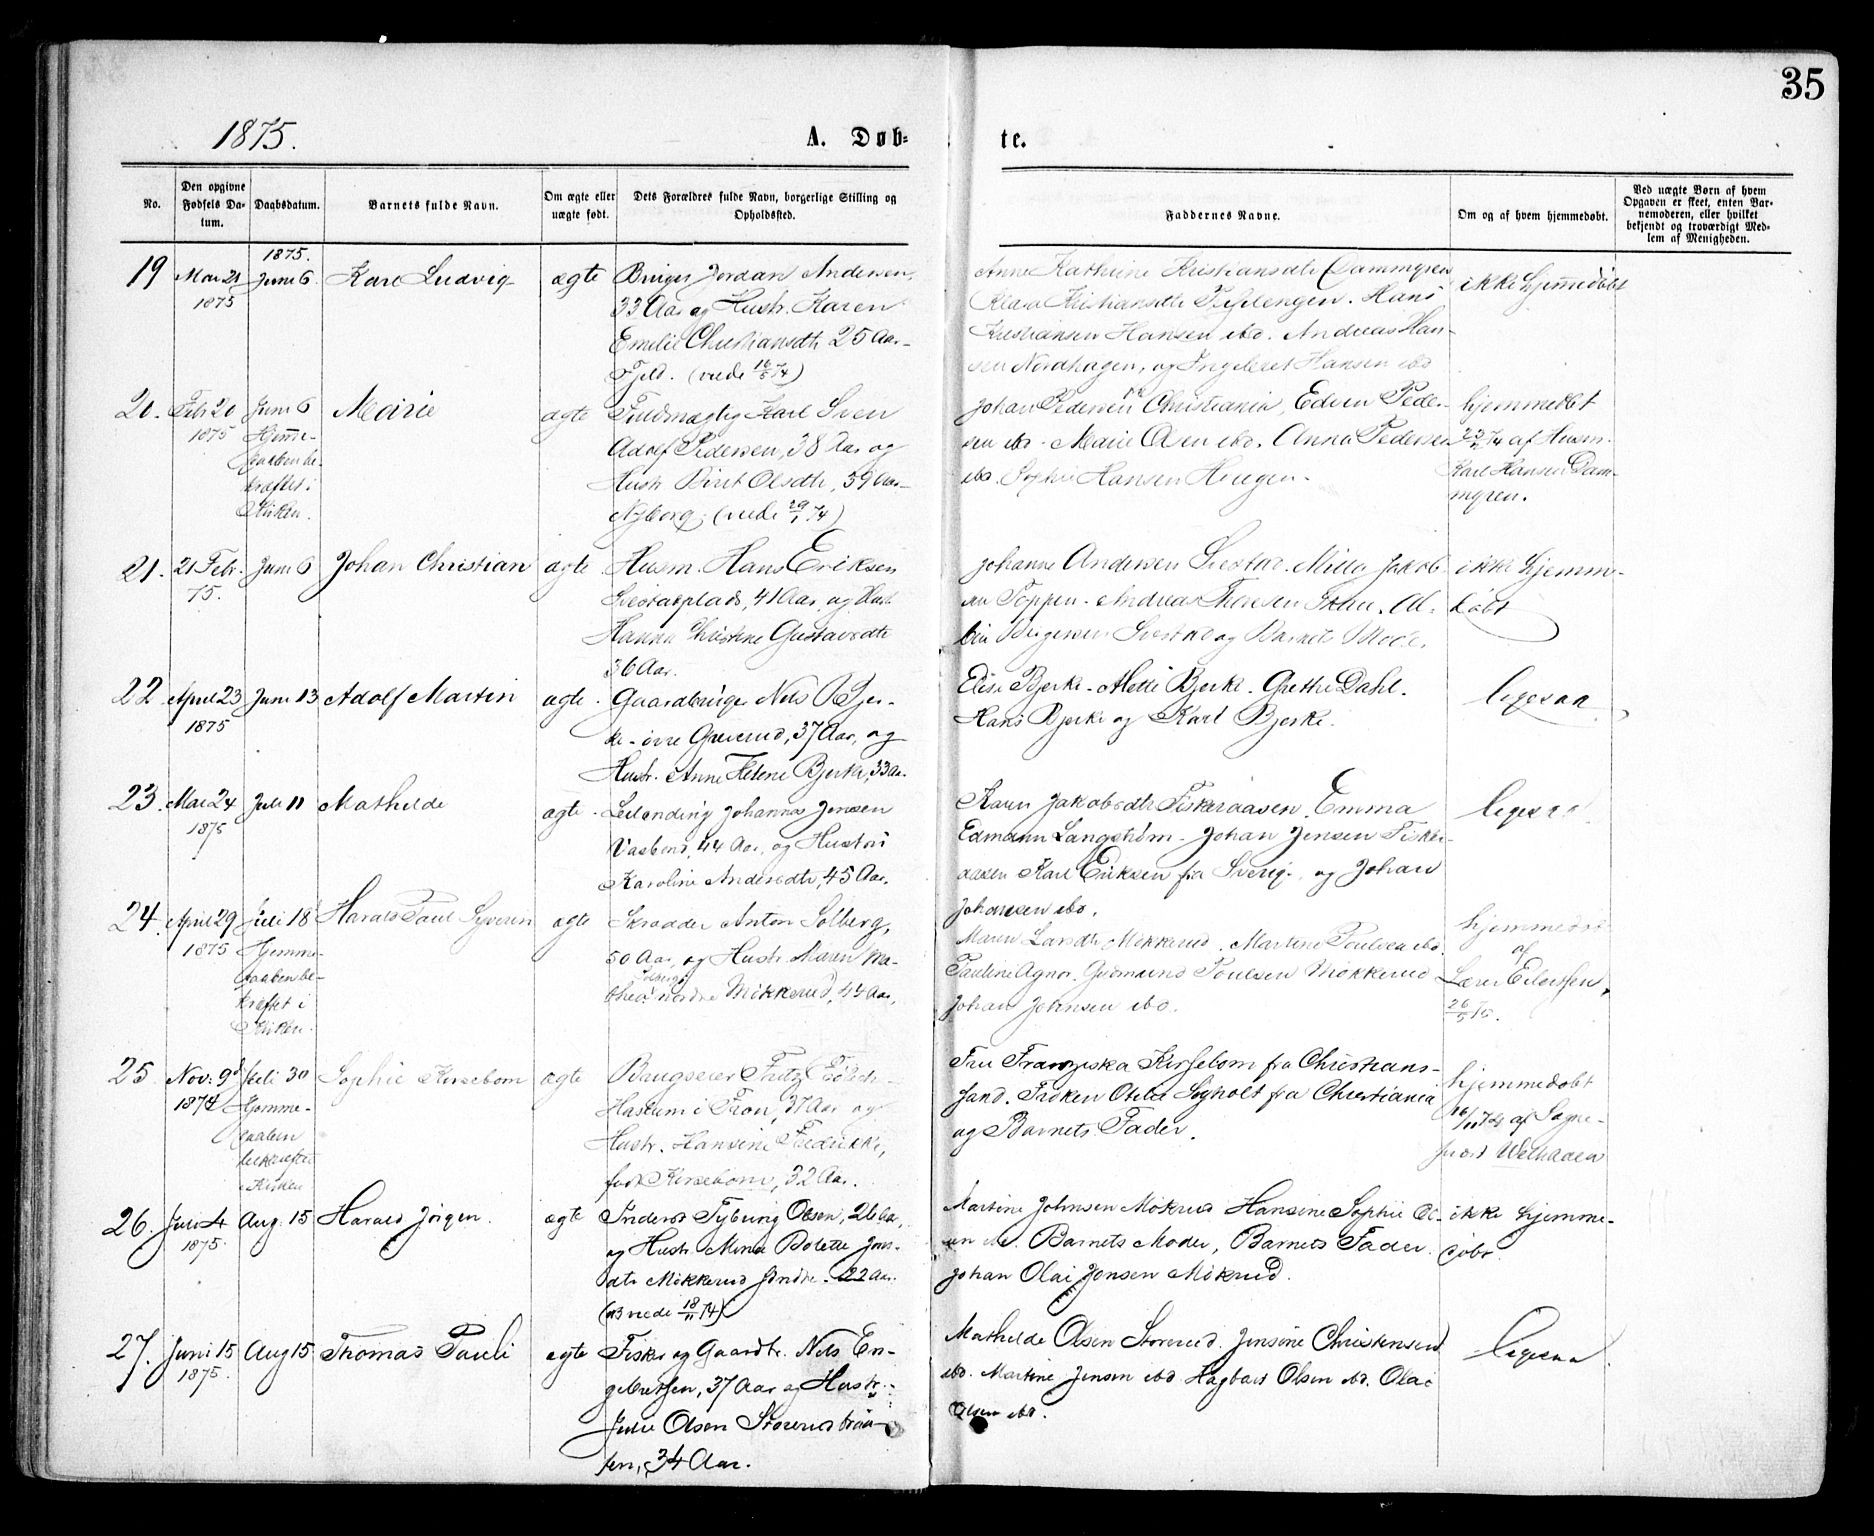 35
1875.
A. Døb-
te.
No.
Den opgivne Fødsels Da-tum.
Daabsdatum.
Barnets fulde Navn.
Om ægte eller uægte født.
Dets Forældres fulde Navn, borgerlige Stilling og Opholdssted.
Faddernes Navne.
Om og af hvem hjemmedøbt.
Ved uægte Børn af hvem Opgaven er skeet, enten Bar-nemoderen, eller hvilket bekjendt og troværdigt Med-lem af Menigheden.
19
1875
1875. Juni 6
Karl Ludvig
ægte
Jordan Andersen,
33 Aar og Hustr. Karen
Emilie Christiansdtr 25 Aar
Fjeld.
Anne Kathrine Kristiansdtr Dammgren
Kristiansdtr Hans
Kristiansen Hansen ibd. Andreas Han-
sen Nordhagen, og Ingeborg Hansen ibd
ikke hjemmedøbt
20.
Febr 20
1875
Juni 6
Hjemme-
daaben be-
kræftet i
Kirken.
Marie
ægte
Fuldmægtig Karl Sven
Adolf Pedersen, 38 Aar og
Hustr Biret Olsdtr, 39 Aar
Nyborg; (viede 29/1 74)
Johan Pedersen Christiania, Edvin Peder-
sen ibd. Marie Olsen ibd. Anna Pedersen
ibd. Sophie Hansen Haugen.
af Husm.
Karl Hansen Dam-
mgren.
21.
21 Febr.
75.
Juni 6
Johan Christian
ægte
Husm. Hans Eriksen
41 Aar, og Hust
Hanna Christine Gustavsdtr
36 Aar.
Johanne Andersen Milla Jakob-
sen Toppen. Andreas
og Barnets Moder.
ikke hjemme-
døbt
22
April 23
1875
Juni 13
Adolf Martin
ægte
Gaardbruger Nils Bjer-
ke - øvre Greverud, 37 Aar, og
Hustr. Anne Helene Bjerke, 33 Aar.
Elise Bjerke. Mette Bjerke. Grethe Dahl.
Hans Bjerke og Karl Bjerke.
ligesaa
23.
Mai 24
1875
Juli 11
Mathilde
ægte
Leilending Johannes Jensen
44 Aar, og Hustru
Karoline Andersdtr, 45 Aar.
Karen Jakobsdtr Fiskeraasen. Emma
Edmann Langstrøm. Johan Jensen Fiske-
aasen Karl Eriksen fra Sverig, og Johan
Johansen ibd.
ligesaa
24.
April 29
1875
Juli 18
Hjemme-
daaben be-
kræftet i
Kirken.
Harald Paul Syverin
ægte
Skrædder Anton Solberg,
50 Aar, og Hustr. Maren Ma-
thea Solberg nordre Mökkerud, 44 Aar,
Maren Mökkerud. Martine Poulsen ibd.
Pauline Agnor. Gudmund Poulsen Mökkerud
Johan Johnsen ibd.
hjemmedøbt
af
Lærer Eilertsen,
26/5 75.
25
Nov: 9d
1874
Juli 30
Hjemme-
daaben
bekræftet
Kirken
Sophie Kirsebom
ægte
Brugseier Fritz
i Fron, 37 Aar og
Hustr. Hansine Fredrikke,
født Kirsebom, 32 Aar.
Fru Franziska Kirsebom fra Christians-
sand. Frøken fra Christiania
og Barnets Fader.
hjemmedøbt
16/11 74 af Sogne-
præst Welhaven
26.
Juli 4
1875.
Aug. 15
Harald Jörgen.
ægte
Inderst Olsen, 26 Aar,
og Hustr. Mina Bolette Jens-
dtr Mökkerud søndre. 22 Aar.
(viede 18/11 74)
Martine Johnsen Mökrud Hansine Sophie Ol-
sen ibd. Barnets Moder, Barnets Fader.
Johan Olai Jensen Mökrud.
ikke hjemme-
døbt
27.
Juni 15
1875.
Aug 15
Thomas Pauli
ægte
Fisker og Gaardbr. Nils En-
gebretsen, 37 Aar og Hustr.
Julie Olsen Storerudbraa-
ten, 34 Aar.
Mathilde Olsen Storerud. Jensine Christensen
ibd. Martine Jensen ibd Hagbart Olsen ibd. Olai
Olsen ibd.
ligesaa